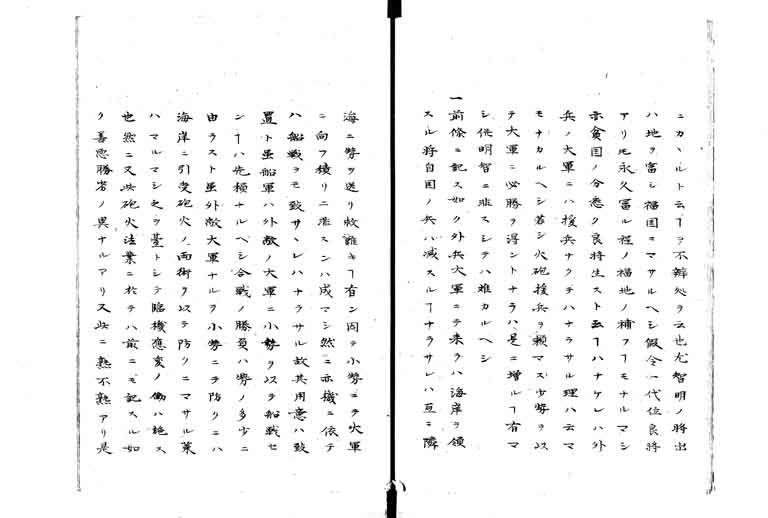 ニカヽルト云ヿヲ不辨処ヲ云也尤智明ノ將出
ハ地ヲ富シ福国ニマサルヘシ假令一代位良將
アリ𪜈永久冨ル程ノ福地ノ補フヿモナルマシ
亦貧国ノ分悉ク良將生スト云ヿハナケレハ外
兵ノ大軍ニハ援兵ナクテハナラサル理ハ云マ
モナカルヘシ若シ火砲援兵ヲ頼マス少勢ヲ以
テ大軍ニ必勝ヲ得ントナラハ是ニ増ルヿ有マ
シ併明智ニ非スシテハ難カルヘシ
一前條ニ記ス如ク外兵大軍ニテ来ラハ海岸ヲ領
スル将自国ノ兵ハ減スルヿナラサレハ互ニ隣
海ニ勢ヲ送リ救籬キヿ有ン因テ小勢ニテ大軍
ニ向フ積リニ非スンハ成マシ然ニ亦機ニ依テ
ハ船戦ヲモ致サヽレハナラサル故其用意ハ致
置ト虽船軍ハ外敵ノ大軍ニ小勢ヲ以テ船戦セ
ンヿハ先積ナルヘシ合戦ノ勝負ハ勢ノ多少ニ
由ラスト虽外敵大軍ナルヲ小勢ニテ防クニハ
海岸ニ引受砲火ノ両術ヲ以テ防クニマサル業
ハマルマシ之ヲ基トシテ臨機應変ノ働ハ施ス
也然ニ又此砲火法業ニ於テハ前ニモ記スル如
ク善悪勝劣ノ異ナルアリ又此ニ熟不熟アリ是